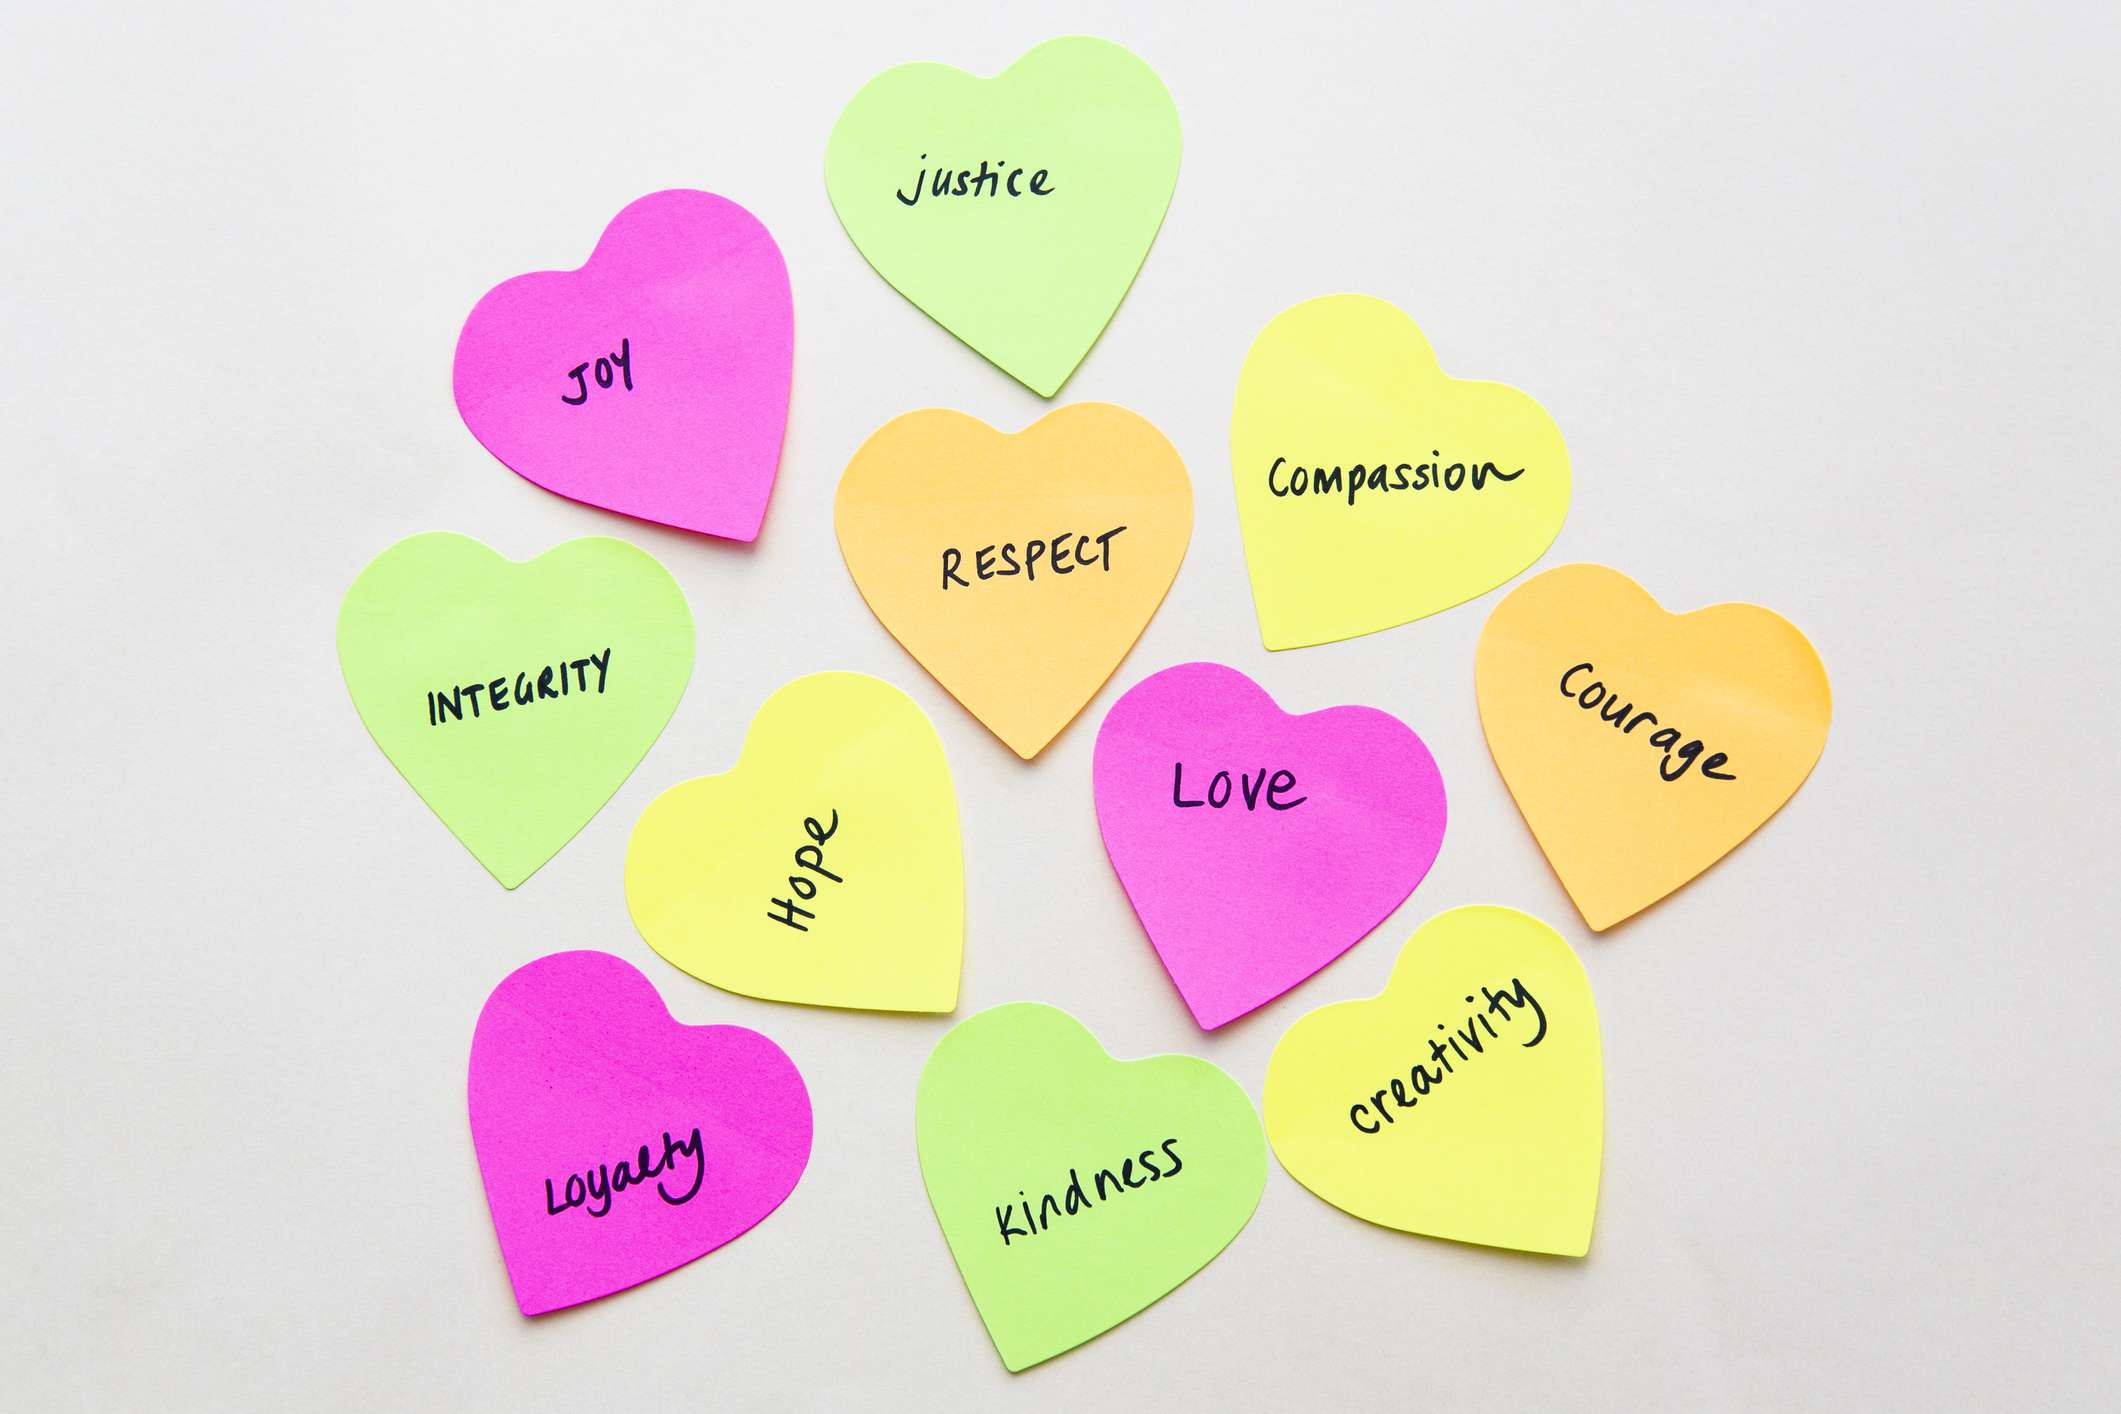 justice
JOY
Compassion
RESPECT
INTEGRITY
Courage
Love
Hope
creativity
Loyalty
Kindness